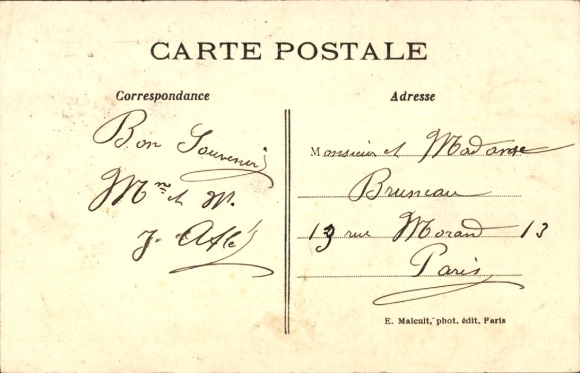 CARTE POSTALE
Correspondance
Bon Souvenir
Mme et M.
J.
Adresse
Monsieur et Madame
Bruneau
13 rue Morand 13
Paris
E. Malcuit, phot. édit. Paris